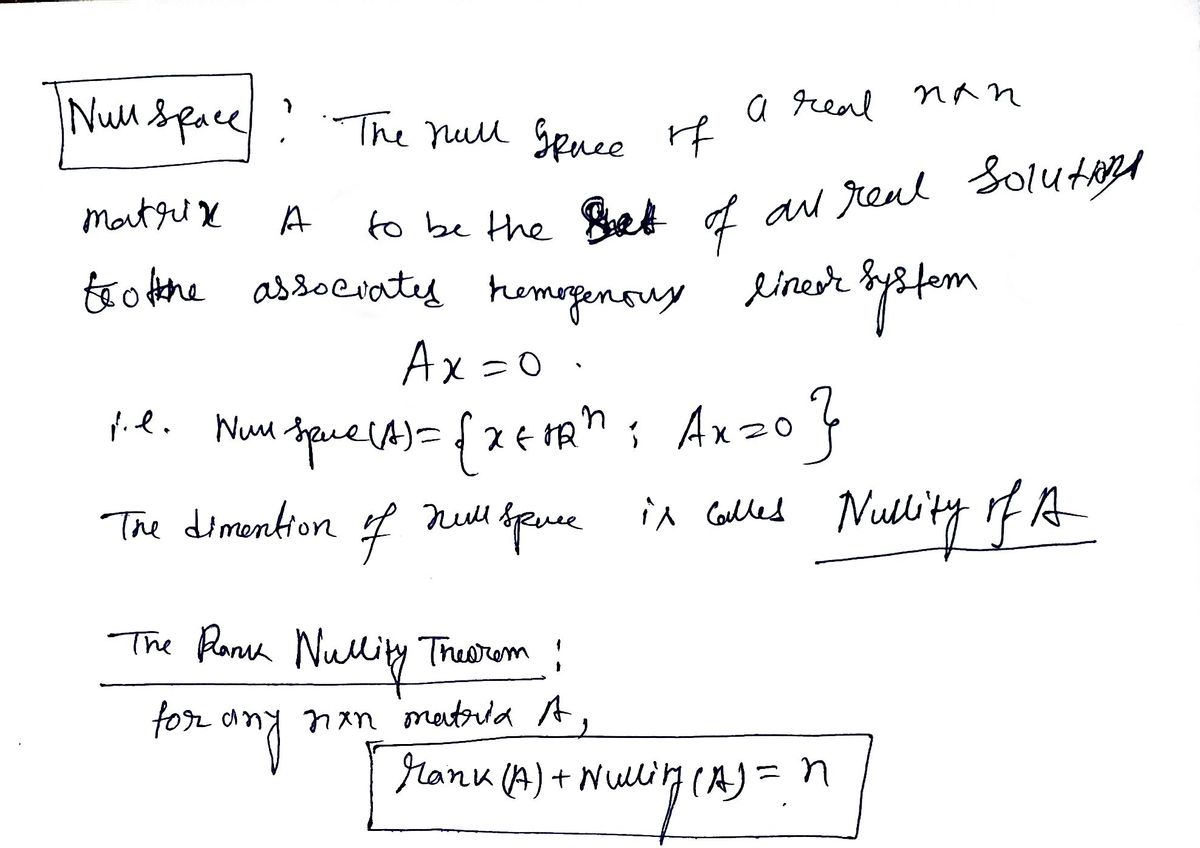 Null space : The null space of a real n×n
matrix A to be the set of all real solutions
to the associates homogenous linear system
Ax = 0 .
i.e. Null space(A) = { x ∈ ℝⁿ ; Ax = 0 }
The dimention of null space is called Nullity of A
The Rank Nullity Theorem :
for any n×n matrix A,
rank (A) + Nullity (A) = n